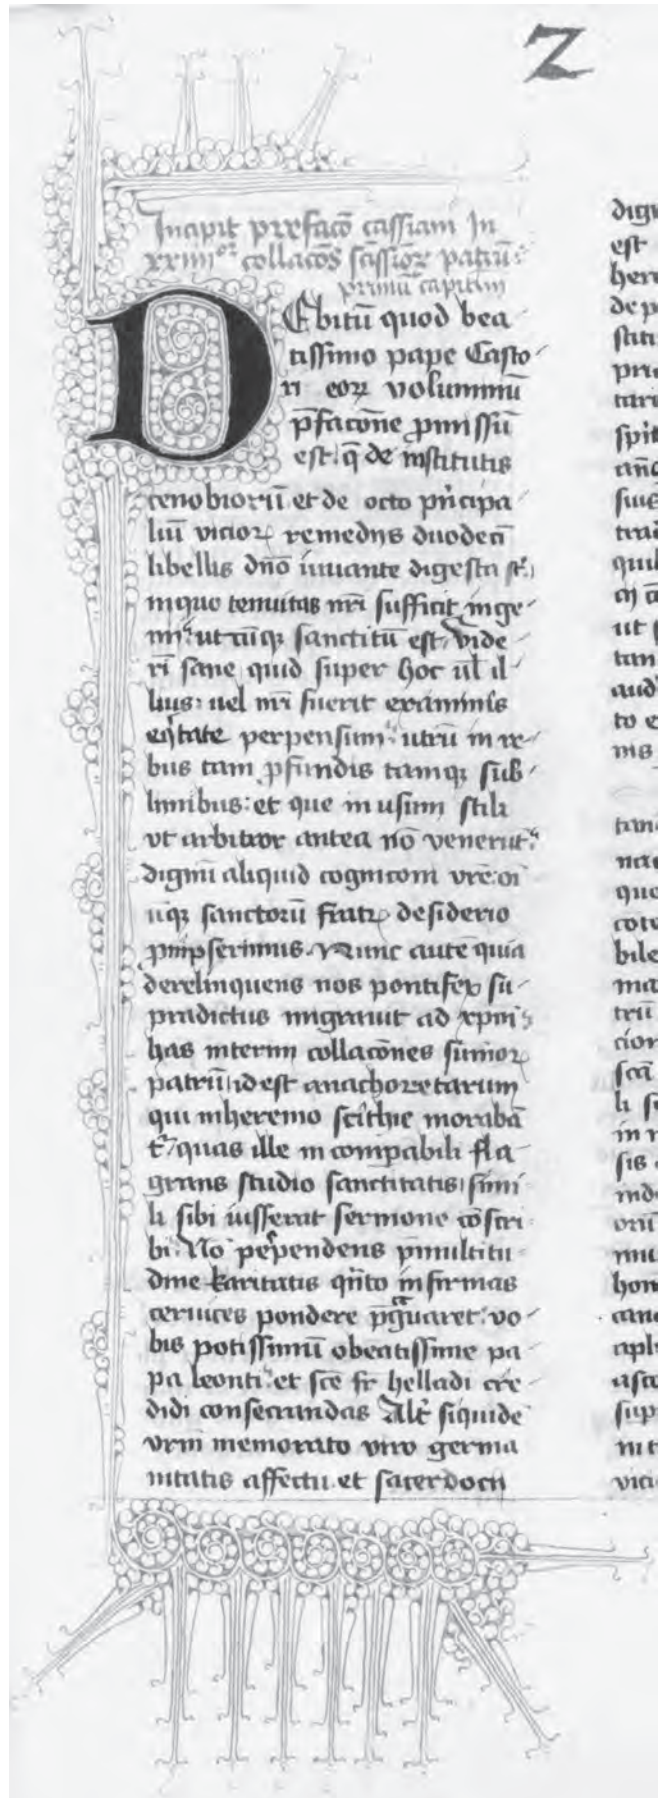 z
Incipit prefacō cassiani In
xxiiiior collacōs sāssioꝝ patrū
primū capitlm
DEbitū quod bea
tissimo pape Casto
ri eoꝝ voluminū
p̄facōne ꝓmissū
est q̄ de institutis
cenobiorū et de octo pⁱncipa
liū vicioꝝ remediis duodecī
libellis dn̄o iuuante digesta st̄
inquo tenuitas nr̄i sufficit inge
nii ut cūqꝫ sanctitū est Vide
rī sane quid super hoc ul̄ il
lius uel nr̄i fuerit examinis
eqⁱtate perpensum utrū in re
bus tam ꝓfundis tamqꝫ sub
limibus et que in usum stili
vt arbitror antea nō venerūt
dignū aliquid cognicom̄ vr̄e oī
ūqꝫ sanctorū fratꝝ desiderio
Nunc autē quia
derelinquens nos pontifex su
pradictus migrauit ad xpm̄
has interim collacōnes sūmoꝝ
patrū id est anachoretarum
qui inheremo scithie morabā
t᷑ quas ille incompabili fla
grans studio sanctitatis simi
li sibi iusserat sermone cōscri
bi No perpendens p̄multitu
dine karitatis qn̄to infirmas
ceruices pondere p̄grauaret vo
bis potissimū obeatissime pa
pa leonti et sc̄e fr̄ helladi cre
didi consecrandas Alt᷑ siquidē
vrm̄ memorato viro germa
nitatis affectu et sacerdocii
est
here
de p
stiti
pri
tari
tan
aud
to e
nis
que
cote
bile
ma
trū
cion
li s
in n
sis
inde
hom
vici